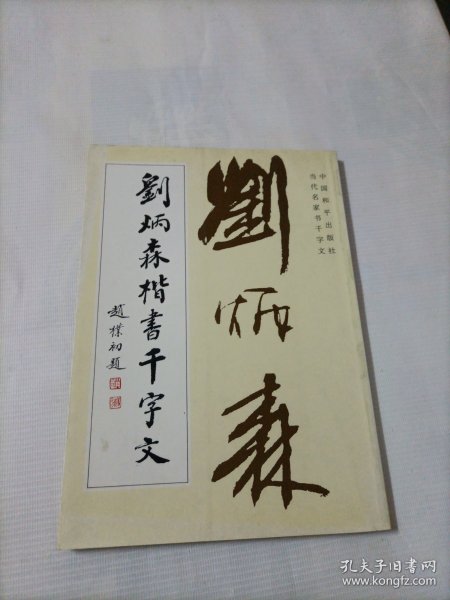 中国和平出版社
当代名家书千字文
劉炳森
劉炳森楷書千字文
趙樸初題
孔夫子旧书网
www.kongfz.com